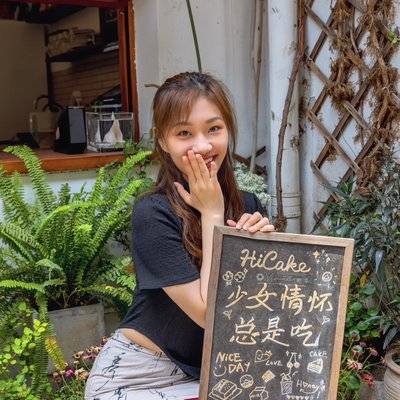 HiCake
少女情怀
总是吃
NICE DAY
LOVE
CAKE
Honey